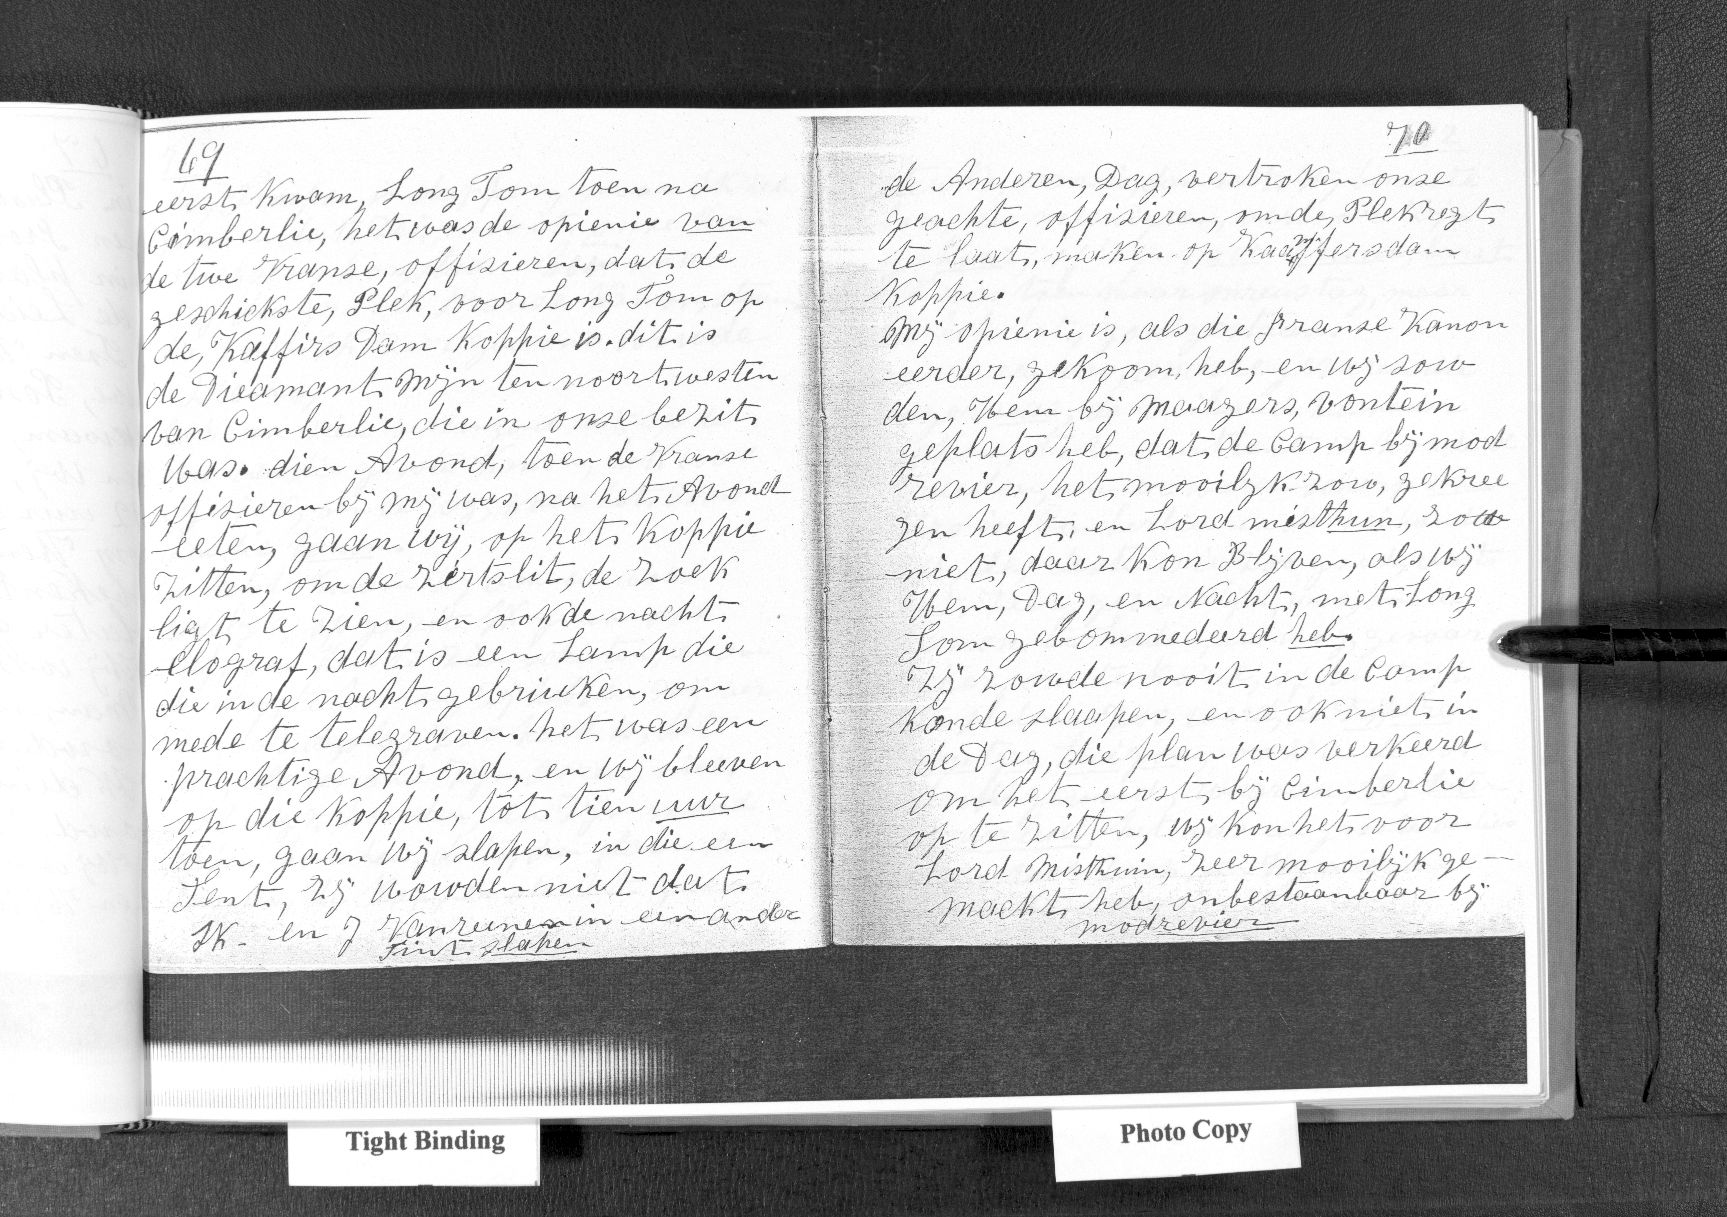 69
eerst Kwam, Long Tom toen na
Cimberlie, het was de opienie van
de twe Franse, offisieren, dat de
geschickste, Plek, voor Long Tom op
de, Kaffirs Dam Koppie is. dit is
de Dieamant Mijn ten noort westen
van Cimberlie, die in onse bezit
was. dien Avond, toen de Franse
offisieren bij mij was, na het Avond
eeten, gaan wij, op het Koppie
zitten, om de zertslit, de zoek
ligt te zien, en ook de nacht
elograf, dat is een Lamp die
die in de nacht gebriuken, om
mede te telegraven. het was een
prachtige Avond, en wij bleeven
op die Koppie, tot tien uur
toen, gaan wij slapen, in die een
Tent, zij wowden niet dat
IK en J Vanreenen in een ander
Tint slapen
70
de Anderen, Dag, vertroken onse
geachte, offisieren, om de, Plek regt
te laat, maken op Kaaffersdam
Koppie.
Mij opienie is, als die franse Kanon
eerder, gekoom heb, en wij sow
den, Hem bij Maagers, vontein
geplats heb, dat de Camp bij mod
revier, het mooilyk zow, gekree
gen heeft, en Lord misthun, zow
niet, daar Kon Blijven, als wij
Hem, Dag, en Nacht, met Long
Tom gebommedeerd heb.
Zij zowde nooit in de Camp
Konde slaapen, en ook niet in
de Dag, die plan was verkeerd
om het eerst bij Cimberlie
op te zitten, wij kon het voor
Lord Misthuin, zeer mooilijk ge-
mackt heb, onbestaanbaar bij
modrevier
Tight Binding
Photo Copy